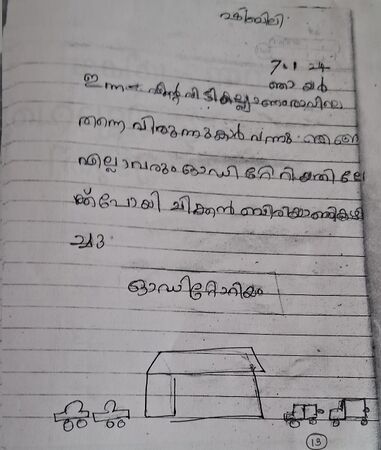 7.1 24
ഞായർ
ഇന്ന് എന്റെ വീട്ടിൽ
തന്നെ വിരുന്നുകാർ വന്നു. ഞങ്ങൾ
എല്ലാവരും ഓഡിറ്റോറിയത്തിലേ
ക്ക് പോയി ചിക്കൻ ബിരിയാണി കഴി
ച്ചു.
ഓഡിറ്റോറിയം
13